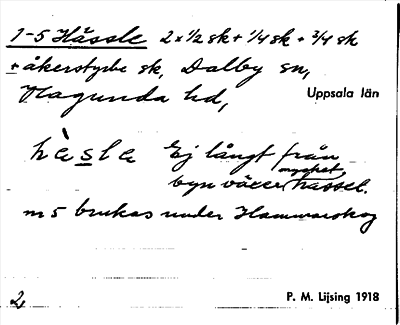 1-5 Hässle 2x1/2 sk + 1/4 sk + 3/4 sk
+ åkerstycke sk, Dalby sn,
Hagunda hd, Uppsala län
hèsla Ej långt från
mycket
byn växer hassel.
n 5 brukas under Hammarskog
2, P. M. Lijsing 1918